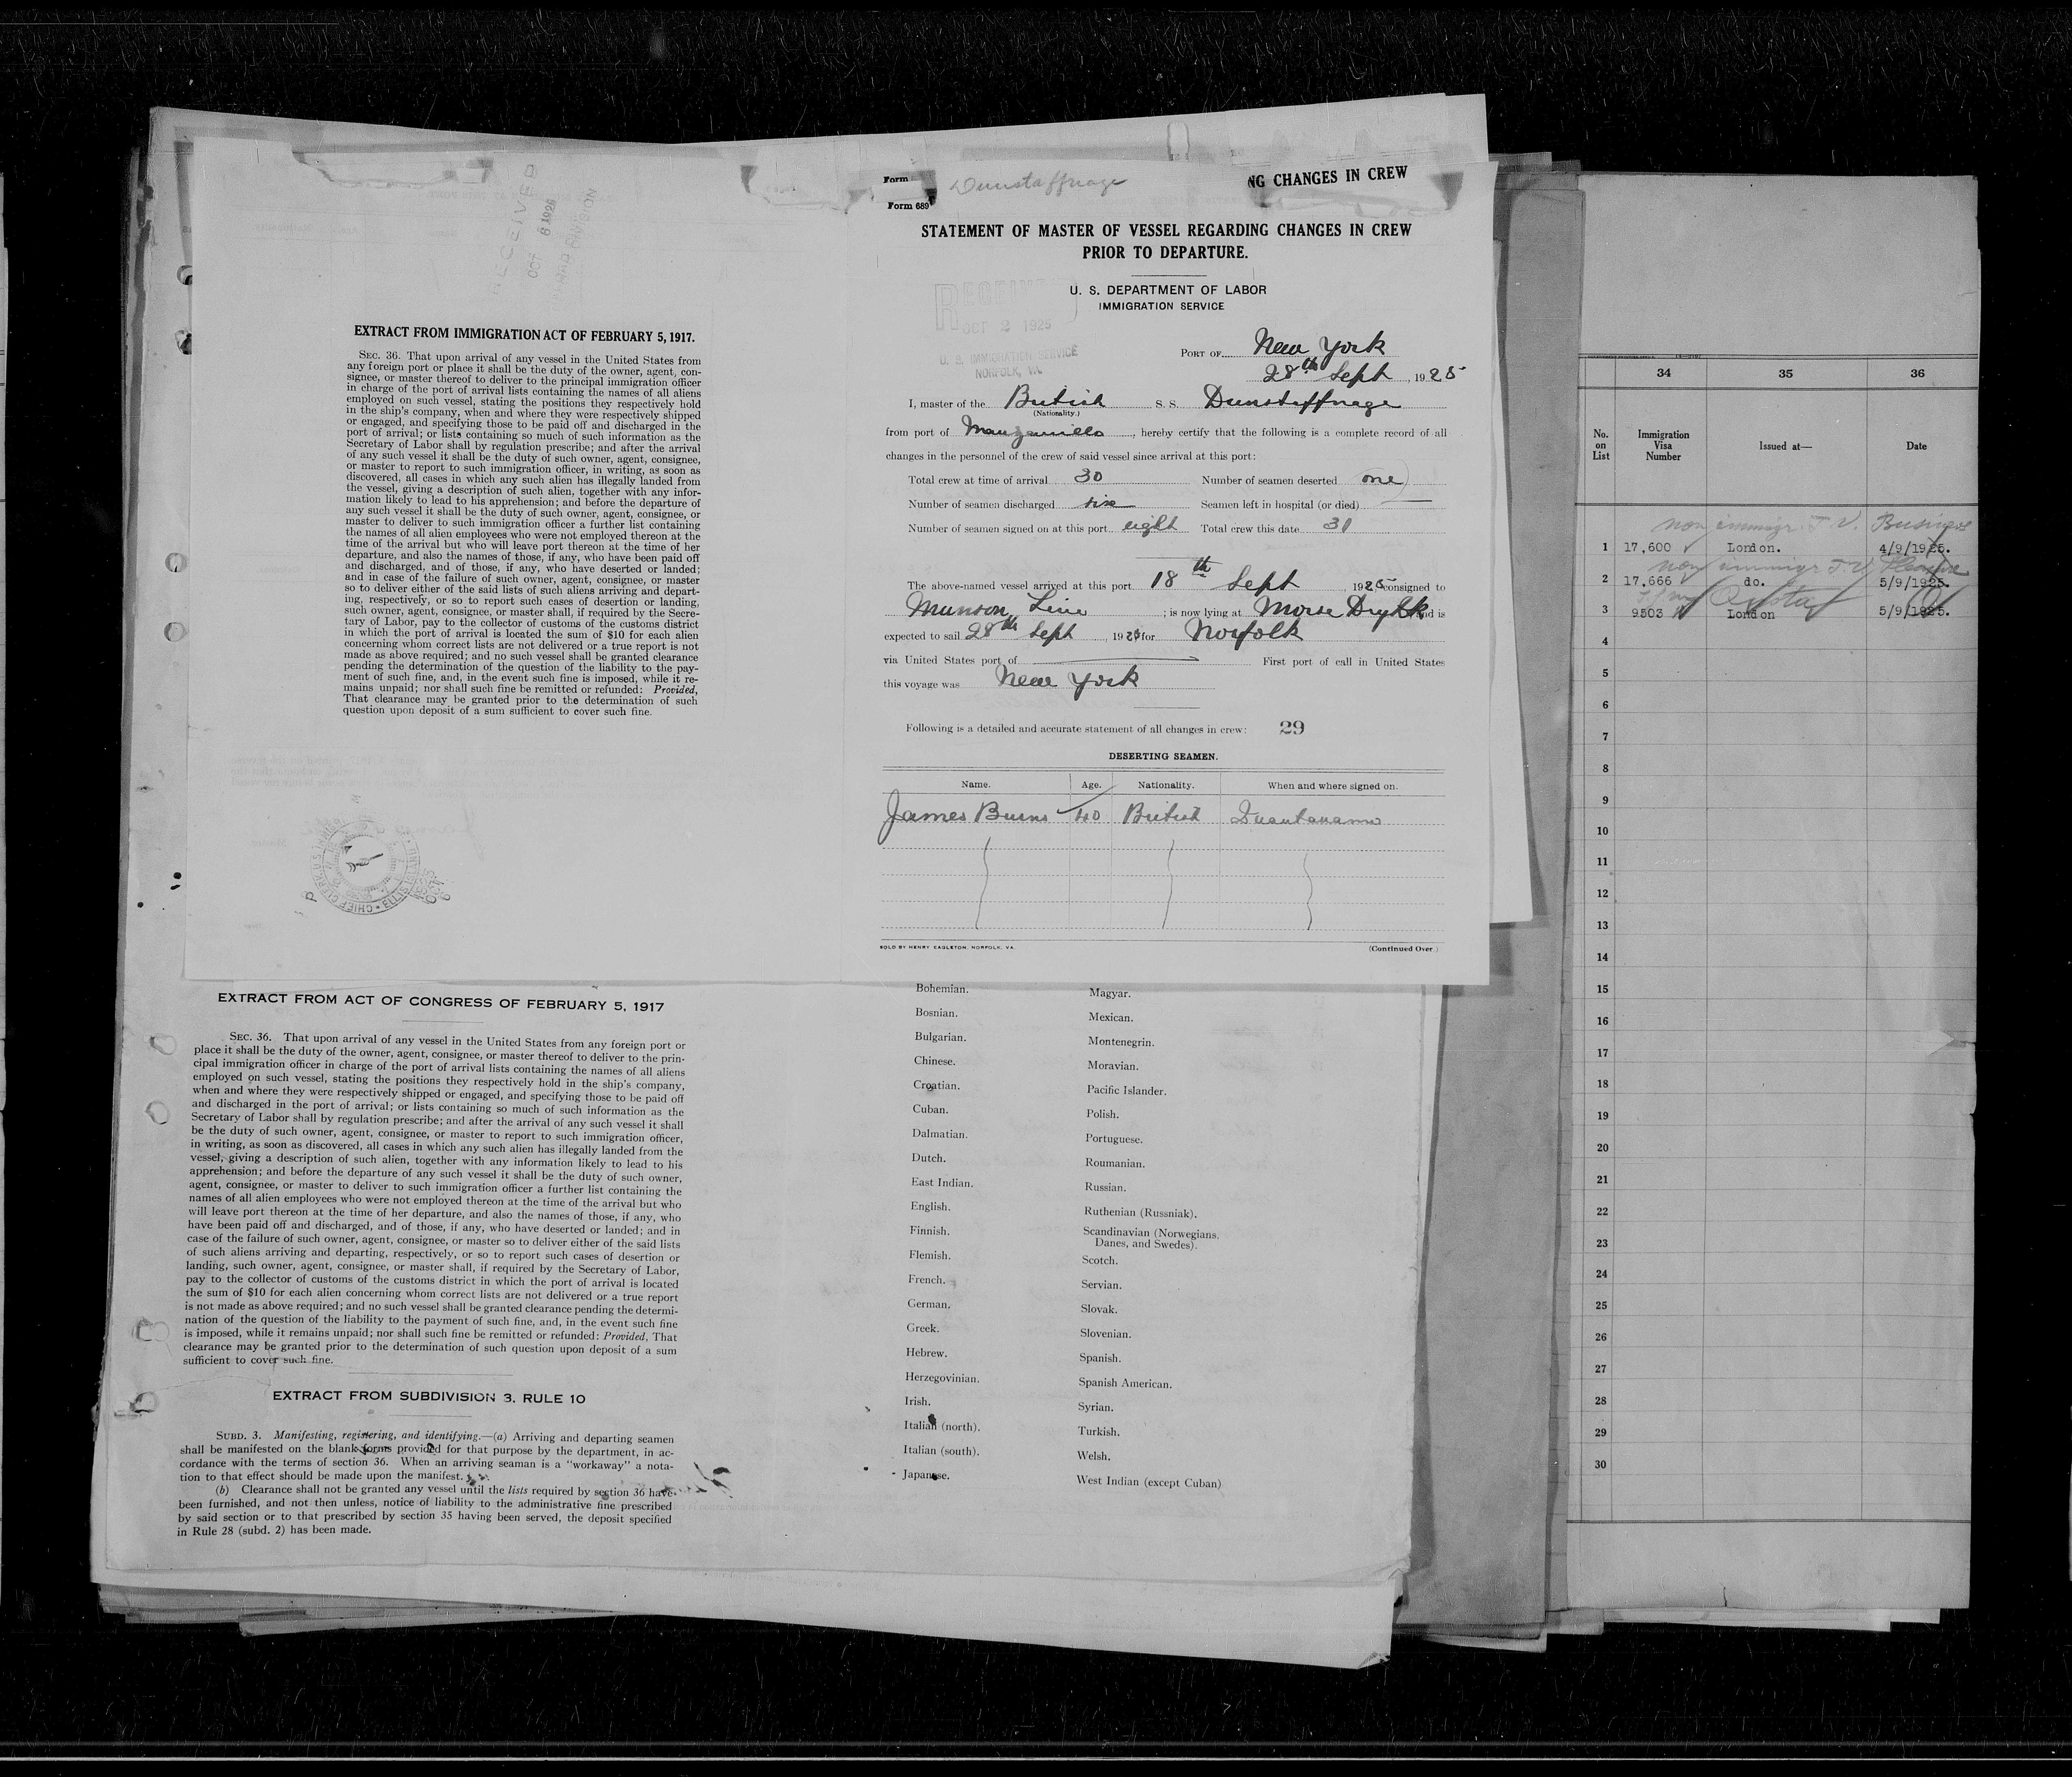 RECEIVED
OCT 8 1925
DIVISION
EXTRACT FROM IMMIGRATION ACT OF FEBRUARY 5, 1917.
SEC. 36. That upon arrival of any vessel in the United States from
any foreign port or place it shall be the duty of the owner, agent, con-
signee, or master thereof to deliver to the principal immigration officer
in charge of the port of arrival lists containing the names of all aliens
employed on such vessel, stating the positions they respectively hold
in the ship's company, when and where they were respectively shipped
or engaged, and specifying those to be paid off and discharged in the
port of arrival; or lists containing so much of such information as the
Secretary of Labor shall by regulation prescribe; and after the arrival
of any such vessel it shall be the duty of such owner, agent, consignee,
or master to report to such immigration officer, in writing, as soon as
discovered, all cases in which any such alien has illegally landed from
the vessel, giving a description of such alien, together with any infor-
mation likely to lead to his apprehension; and before the departure of
any such vessel it shall be the duty of such owner, agent, consignee, or
master to deliver to such immigration officer a further list containing
the names of all alien employees who were not employed thereon at the
time of the arrival but who will leave port thereon at the time of her
departure, and also the names of those, if any, who have been paid off
and discharged, and of those, if any, who have deserted or landed;
and in case of the failure of such owner, agent, consignee, or master
so to deliver either of the said lists of such aliens arriving and depart-
ing, respectively, or so to report such cases of desertion or landing,
such owner, agent, consignee, or master shall, if required by the Secre-
tary of Labor, pay to the collector of customs of the customs district
in which the port of arrival is located the sum of $10 for each alien
concerning whom correct lists are not delivered or a true report is not
made as above required; and no such vessel shall be granted clearance
pending the determination of the question of the liability to the pay-
ment of such fine, and, in the event such fine is imposed, while it re-
mains unpaid; nor shall such fine be remitted or refunded: Provided,
That clearance may be granted prior to the determination of such
question upon deposit of a sum sufficient to cover such fine.
Form
Dunstaffnage
NG CHANGES IN CREW
Form 689
STATEMENT OF MASTER OF VESSEL REGARDING CHANGES IN CREW
PRIOR TO DEPARTURE.
U. S. DEPARTMENT OF LABOR
IMMIGRATION SERVICE
RECEIVED
OCT 2 1925
U. S. IMMIGRATION SERVICE
NORFOLK, VA.
PORT OF New York
28th Sept, 1925
I, master of the British S. S. Dunstaffnage
(Nationality.)
from port of Manzanillo, hereby certify that the following is a complete record of all
changes in the personnel of the crew of said vessel since arrival at this port:
Total crew at time of arrival 30 Number of seamen deserted one
Number of seamen discharged six Seamen left in hospital (or died)
Number of seamen signed on at this port eight Total crew this date 31
The above-named vessel arrived at this port 18th Sept, 1925 consigned to
Munson Line; is now lying at Morse DryDk and is
expected to sail 28th Sept, 1925 for Norfolk
via United States port of First port of call in United States
this voyage was New York
Following is a detailed and accurate statement of all changes in crew: 29
DESERTING SEAMEN.
Name. Age. Nationality. When and where signed on.
James Burns 40 British Guantanamo
SOLD BY HENRY EAGLETON, NORFOLK, VA.
(Continued Over.)
EXTRACT FROM ACT OF CONGRESS OF FEBRUARY 5, 1917
SEC. 36. That upon arrival of any vessel in the United States from any foreign port or
place it shall be the duty of the owner, agent, consignee, or master thereof to deliver to the prin-
cipal immigration officer in charge of the port of arrival lists containing the names of all aliens
employed on such vessel, stating the positions they respectively hold in the ship's company,
when and where they were respectively shipped or engaged, and specifying those to be paid off
and discharged in the port of arrival; or lists containing so much of such information as the
Secretary of Labor shall by regulation prescribe; and after the arrival of any such vessel it shall
be the duty of such owner, agent, consignee, or master to report to such immigration officer,
in writing, as soon as discovered, all cases in which any such alien has illegally landed from the
vessel, giving a description of such alien, together with any information likely to lead to his
apprehension; and before the departure of any such vessel it shall be the duty of such owner,
agent, consignee, or master to deliver to such immigration officer a further list containing the
names of all alien employees who were not employed thereon at the time of the arrival but who
will leave port thereon at the time of her departure, and also the names of those, if any, who
have been paid off and discharged, and of those, if any, who have deserted or landed; and in
case of the failure of such owner, agent, consignee, or master so to deliver either of the said lists
of such aliens arriving and departing, respectively, or so to report such cases of desertion or
landing, such owner, agent, consignee, or master shall, if required by the Secretary of Labor,
pay to the collector of customs of the customs district in which the port of arrival is located
the sum of $10 for each alien concerning whom correct lists are not delivered or a true report
is not made as above required; and no such vessel shall be granted clearance pending the determi-
nation of the question of the liability to the payment of such fine, and, in the event such fine
is imposed, while it remains unpaid; nor shall such fine be remitted or refunded: Provided, That
clearance may be granted prior to the determination of such question upon deposit of a sum
sufficient to cover such fine.
EXTRACT FROM SUBDIVISION 3, RULE 10
SUBD. 3. Manifesting, registering, and identifying.—(a) Arriving and departing seamen
shall be manifested on the blank forms provided for that purpose by the department, in ac-
cordance with the terms of section 36. When an arriving seaman is a "workaway" a nota-
tion to that effect should be made upon the manifest.
(b) Clearance shall not be granted any vessel until the lists required by section 36 have
been furnished, and not then unless, notice of liability to the administrative fine prescribed
by said section or to that prescribed by section 35 having been served, the deposit specified
in Rule 28 (subd. 2) has been made.
Bohemian. Magyar.
Bosnian. Mexican.
Bulgarian. Montenegrin.
Chinese. Moravian.
Croatian. Pacific Islander.
Cuban. Polish.
Dalmatian. Portuguese.
Dutch. Roumanian.
East Indian. Russian.
English. Ruthenian (Russniak).
Finnish. Scandinavian (Norwegians,
Danes, and Swedes).
Flemish. Scotch.
French. Servian.
German. Slovak.
Greek. Slovenian.
Hebrew. Spanish.
Herzegovinian. Spanish American.
Irish. Syrian.
Italian (north). Turkish.
Italian (south). Welsh.
Japanese. West Indian (except Cuban)
34 35 36
No. on List Immigration Visa Number Issued at— Date
non immigr. T.V. Business
1 17,600 London. 4/9/1925.
non immigr T.V. Pleasure
2 17,666 do. 5/9/1925.
Quota
3 9503 London 5/9/1925.
4
5
6
7
8
9
10
11
12
13
14
15
16
17
18
19
20
21
22
23
24
25
26
27
28
29
30